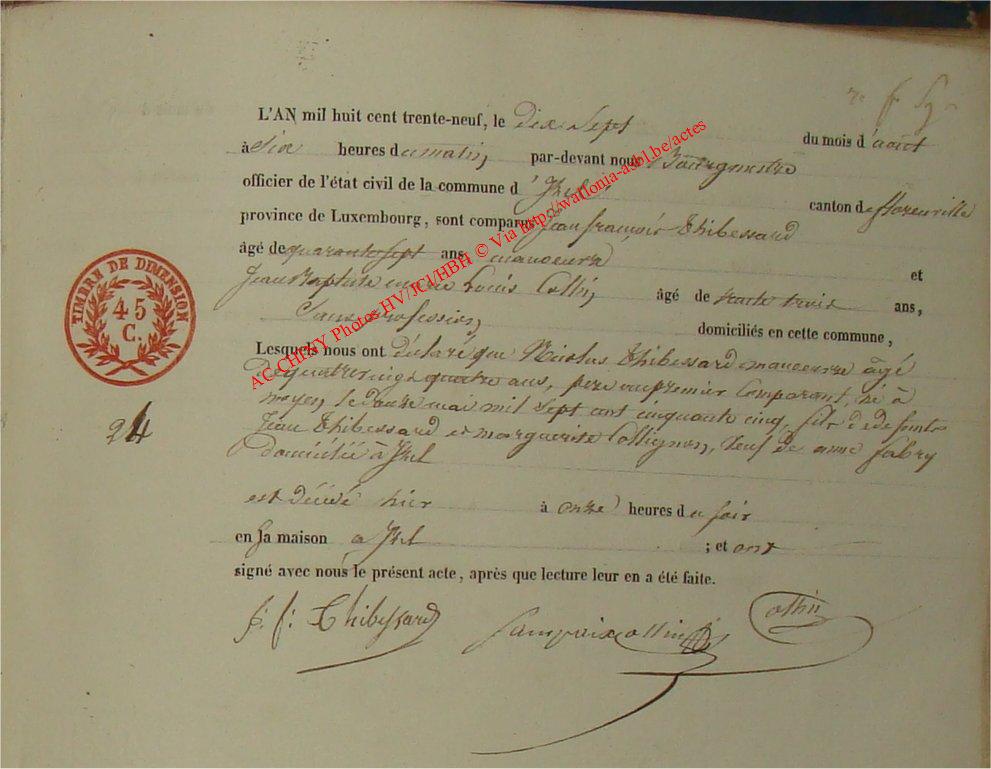 L'AN mil huit cent trente-neuf, le dix Sept du mois d'août
à Six heures du matin, par-devant nous Bourgmestre
officier de l'état civil de la commune d'Izel canton de florenville
province de Luxembourg, sont comparus Jean françois Thibessard
âgé de quarante Sept ans manoeuvre et
Jean Baptiste Louis Collin, âgé de trente trois ans,
Sans profession, domiciliés en cette commune,
Lesquels nous ont déclaré que Nicolas Thibessard manoeuvre âgé
de quatre vingt quatre ans, pere au premier Comparant, né à
moyen, le douze mai mil Sept cent cinquante cinq, fils de defunts
Jean Thibessard et marguerite Collignon, veuf de anne fabry
Domiciliée à Izel
est décédé hier à onze heures du soir
en Sa maison a Izel ; et ont
signé avec nous le présent acte, après que lecture leur en a été faite.
j. f. Thibessard
Collin
TIMBRE DE DIMENSION
45
C.
24
ACCHOXY Photos HV/JCI/HBH © Via http://wallonia-asbl.be/actes